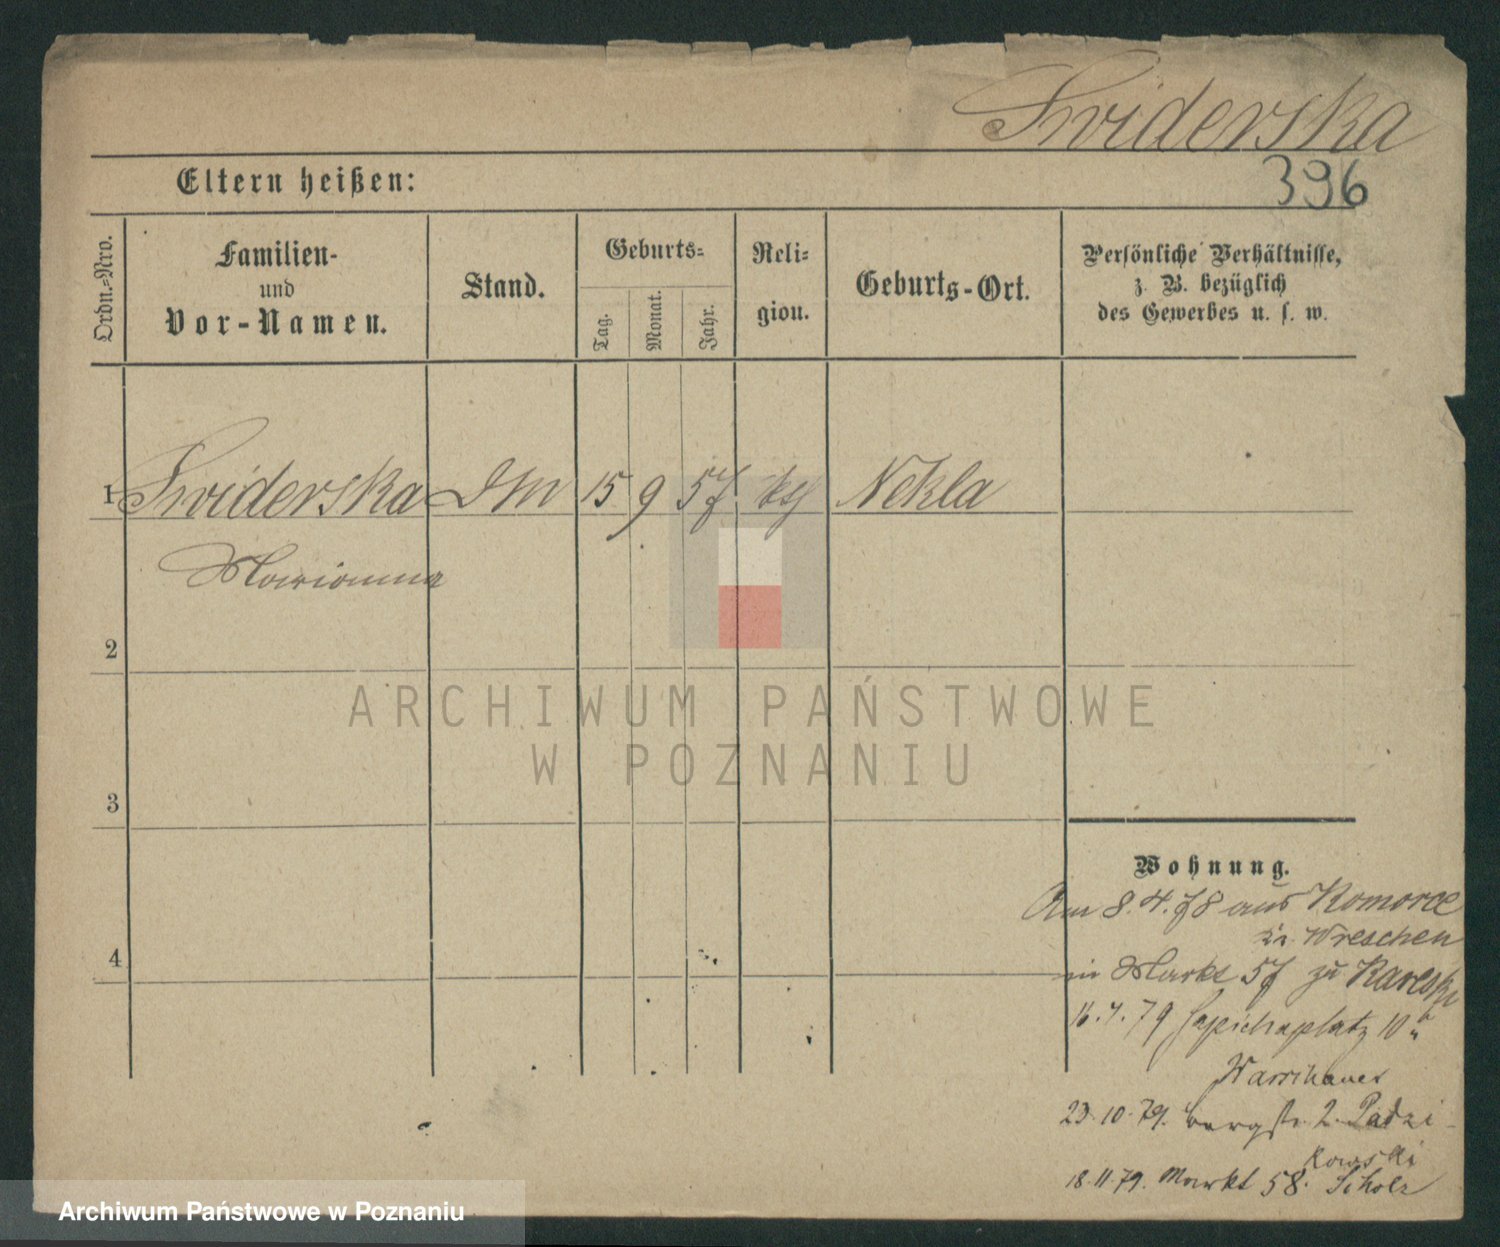 Swiderska
396
Eltern heißen:
Ordn.-Nro.
Familien-
und
Vor-Namen.
Stand.
Geburts-
Tag.
Monat.
Jahr.
Reli-
gion.
Geburts-Ort.
Persönliche Verhältnisse,
z. B. bezüglich
des Gewerbes u. s. w.
1 Swiderska DM 15 9 57 kth Nekla
Marianna
2
3
4
ARCHIWUM PAŃSTWOWE
W POZNANIU
Wohnung.
Am 8.4.78 aus Komorze
in Wreschen
in Markt 57 zu Kareski
16.7.79 Sapiehaplatz 10b
Warschauer
23.10.79. bergstr. 2. Padzi-
kowski
18.11.79. Markt 58. Scholz
Archiwum Państwowe w Poznaniu